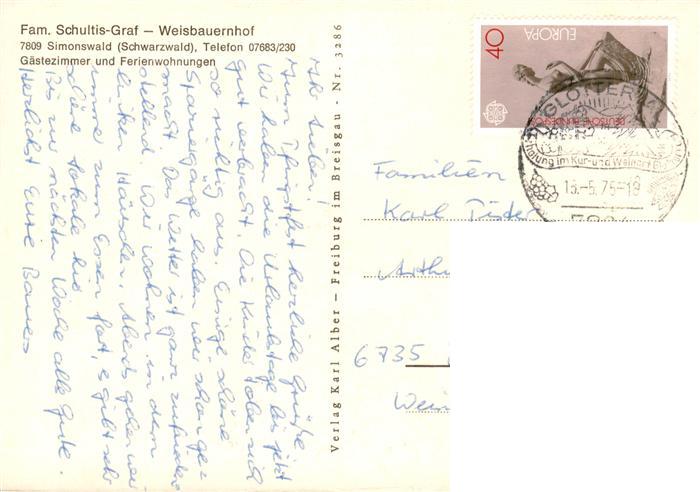 Fam. Schultis-Graf — Weisbauernhof
7809 Simonswald (Schwarzwald), Telefon 07683/230
Gästezimmer und Ferienwohnungen
Ihr Lieben!
Zum Pfingstfest herzliche Grüße
Wir haben die Urlaubstage bis jetzt
gut verbracht. Die Kinder toben sich
so richtig aus. Einige schöne
Spaziergänge haben wir schon ge-
macht. Das Wetter ist ganz zufrieden-
stellend. Wir wohnen in dem
Häuschen. Abends gehen wir
immer zum Essen fort, es gibt sehr
schöne Lokale hier
Bis zur nächsten Woche alle Gute.
Herzlichst Eure Bauers
Verlag Karl Alber — Freiburg im Breisgau - Nr. 3286
40
EUROPA
DEUTSCHE BUNDESPOST
GLOTTERTAL
Erholung im Kur- und Weinort
15.-5. 75-18
7804
Familien
Karl
6735